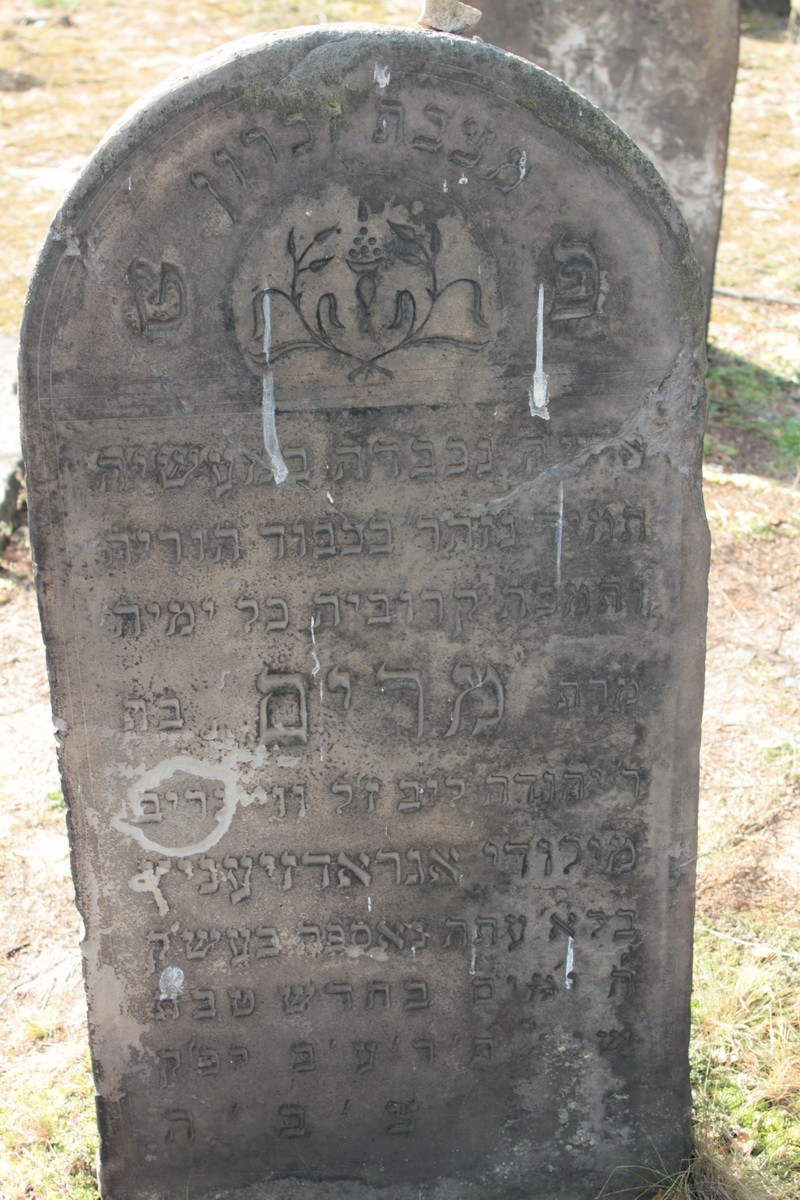 מצבת זכרון
פ ט
נכבדה במעשיה
תמיד נזהר' בכבוד הוריה
ותמכה קרוביה כל ימיה
מרת מרים בת
ר' יהודה ליב ז"ל
מילודי אגראדזיעניץ
בלא עתה נאספה בעש"ק
ה ימים בחדש טבת
ת'ר'ע'ב' יפ"ק
צ' ב' ה'